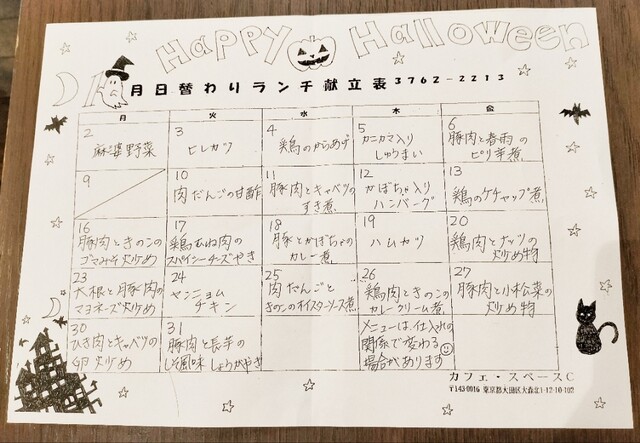 Happy Halloween
月日替わりランチ献立表3762-2213
月 火 水 木 金
2
麻婆野菜
3
ヒレカツ
4
鶏のからあげ
5
カニカマ入り
しゅうまい
6
豚肉と春雨の
ピリ辛煮
9
10
肉だんごの甘酢
11
豚肉とキャベツの
すき煮
12
かぼちゃ入り
ハンバーグ
13
鶏のケチャップ煮
16
豚肉ときのこの
ゴマみそ炒め
17
鶏むね肉の
スパイシーチーズやき
18
豚とかぼちゃの
カレー煮
19
ハムカツ
20
鶏肉とナッツの
炒め物
23
大根と豚肉の
マヨネーズ炒め
24
ヤンニョム
チキン
25
肉だんごと
きのこのオイスターソース煮
26
鶏肉ときのこの
カレークリーム煮
27
豚肉と小松菜の
炒め物
30
ひき肉とキャベツの
卵炒め
31
豚肉と長芋の
しそ風味しょうがやき
メニューは仕入れの
関係で変わる
場合があります
カフェ・スペースC
〒143-0016 東京都大田区大森北1-12-10-102